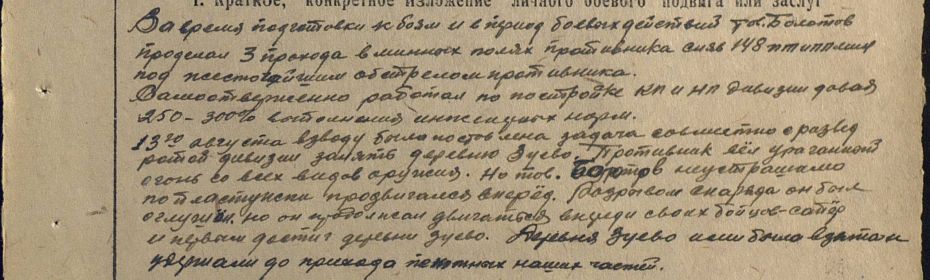 1. Краткое, конкретное изложение личного боевого подвига или заслуг
За время подготовки к боям и в период боевых действий тов. Болотов
проделал 3 прохода в минных полях противника сняв 148
под жесточайшим обстрелом противника.
Самоотверженно работал по постройке КП и НП дивизии давая
250-300% выполнения инженерных норм.
13го августа взводу была поставлена задача совместно с развед
ротой дивизии занять деревню Зуево. Противник вёл ураганный
огонь со всех видов оружия. Но тов. неустрашимо
по пластунски продвигался вперёд. Разрывом снаряда он был
оглушен, но он продолжал двигаться впереди своих бойцов-сапёр
и первым достиг деревни Зуево. Деревня Зуево была взята и
удержали до прихода пехотных наших частей.